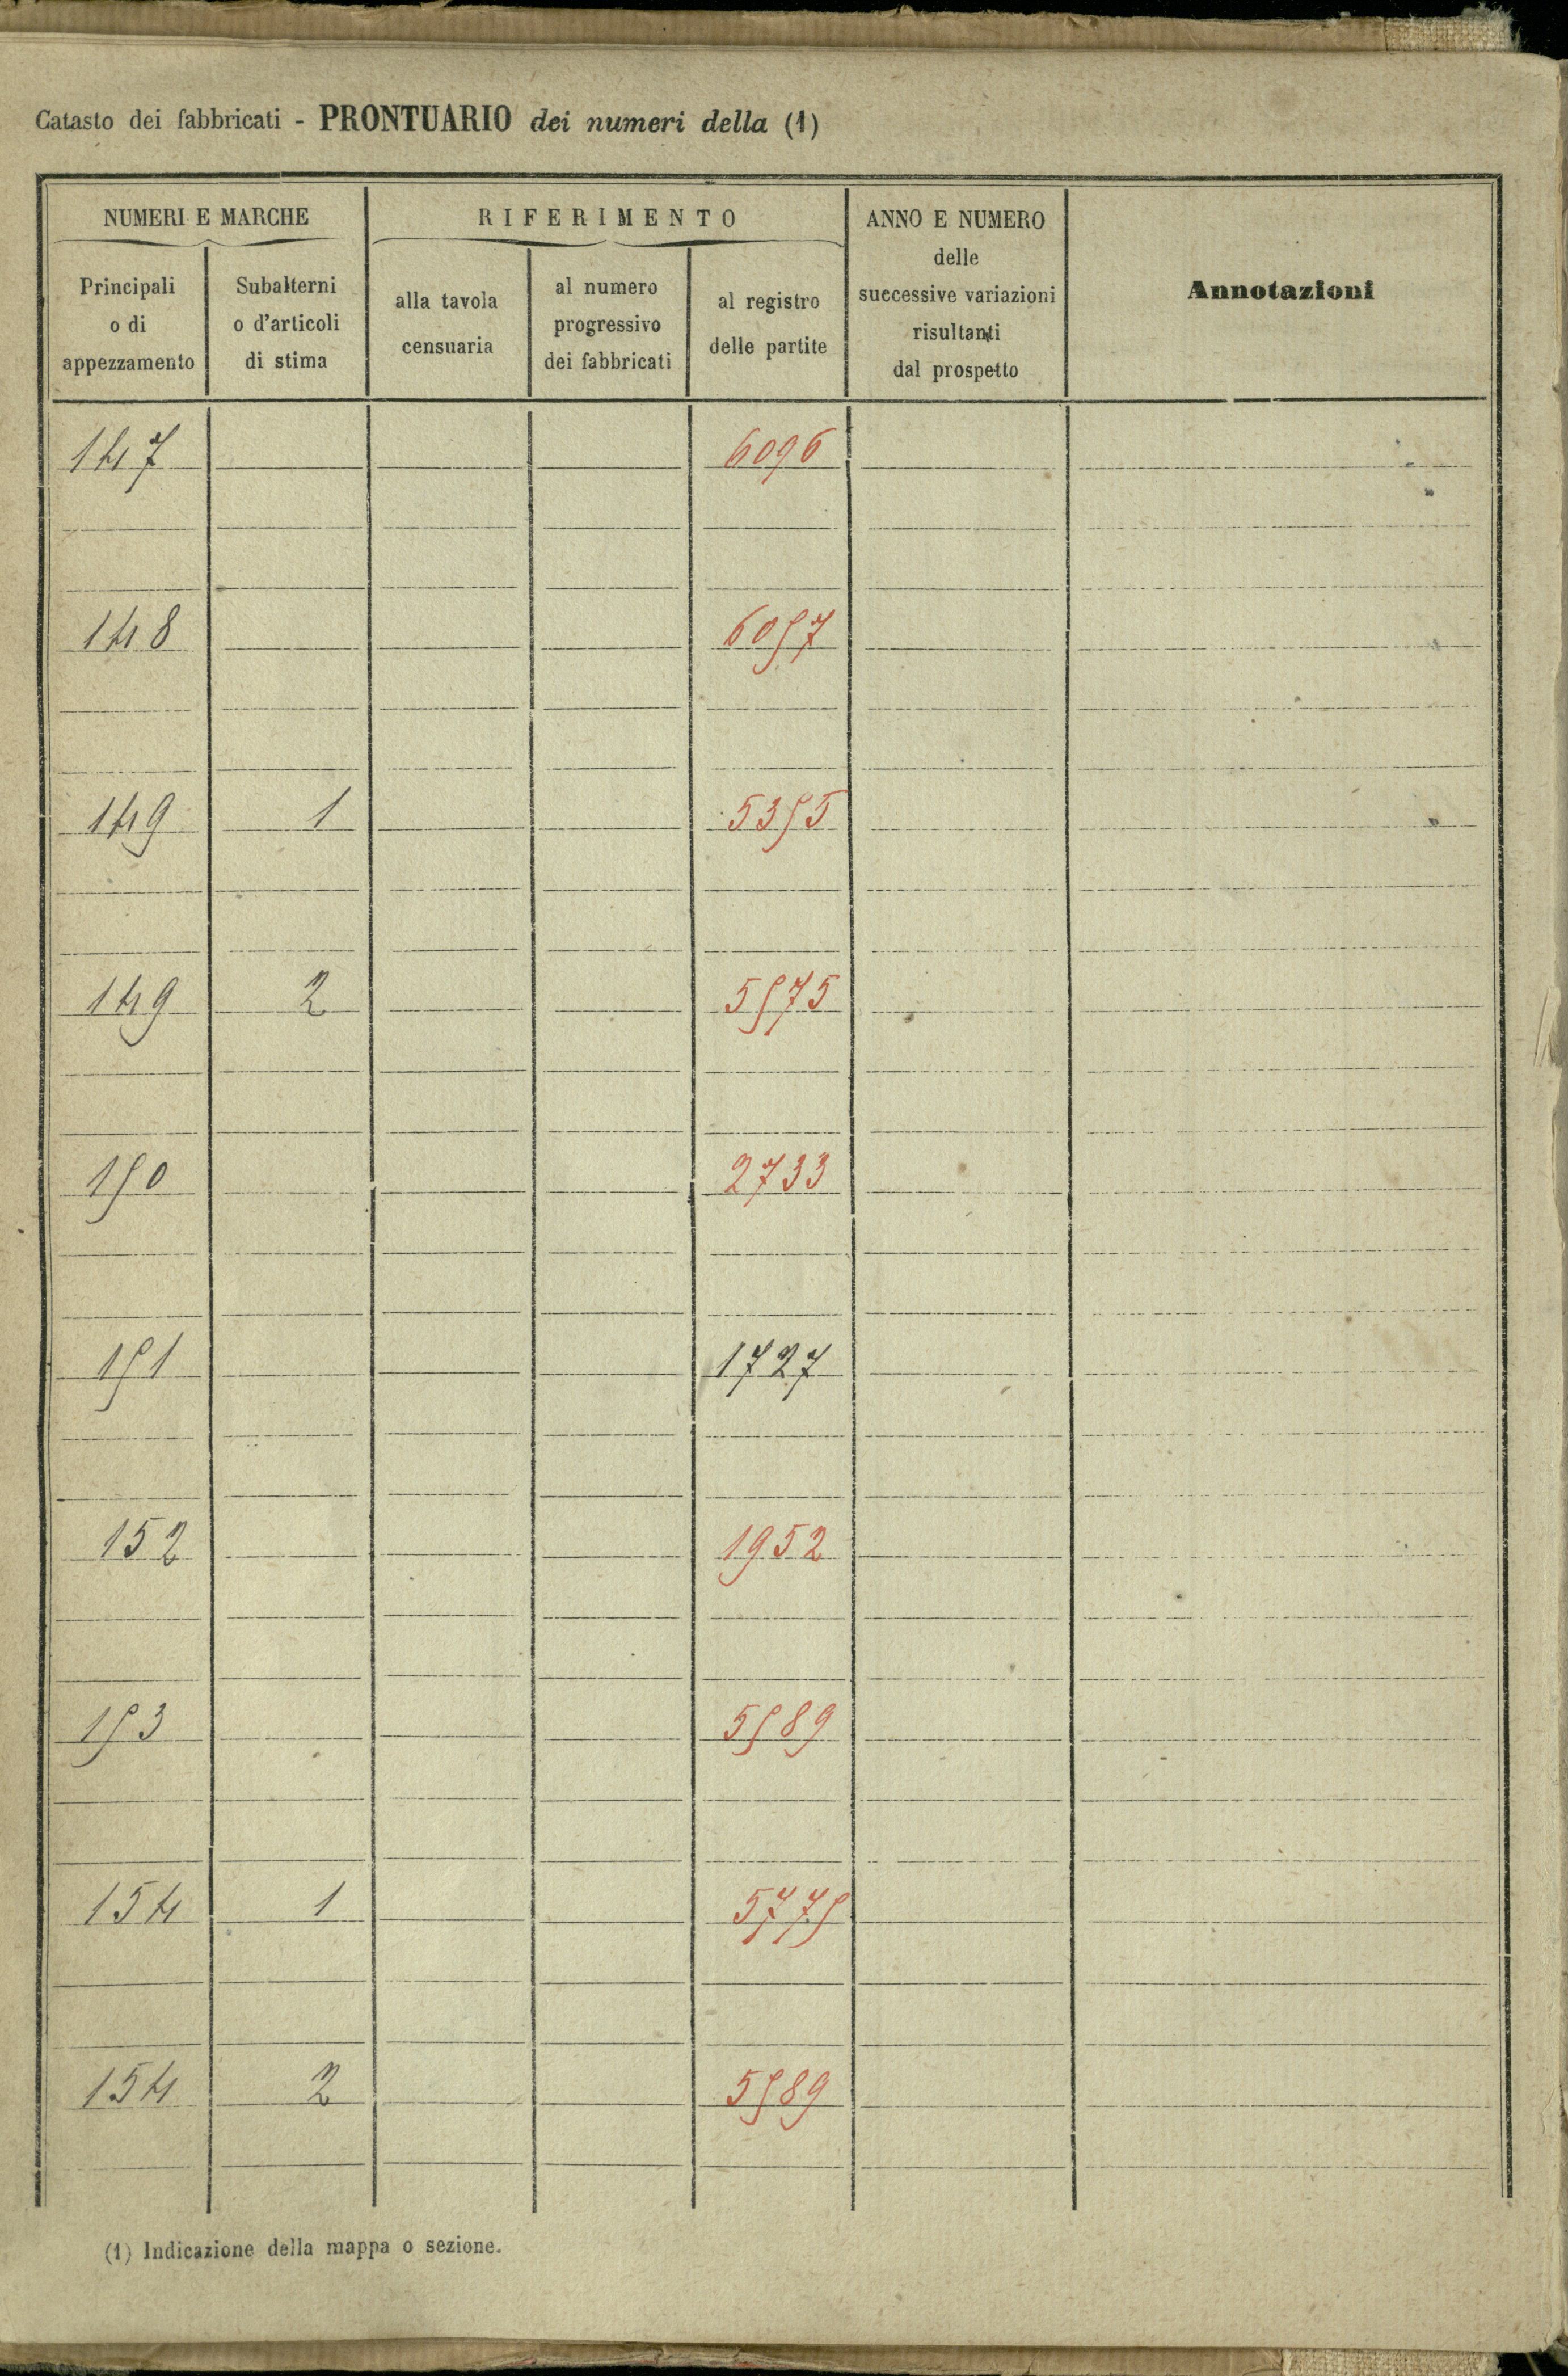 Catasto dei fabbricati - PRONTUARIO dei numeri della (1)
NUMERI E MARCHE
RIFERIMENTO
ANNO E NUMERO
delle
successive variazioni
risultanti
dal prospetto
Annotazioni
Principali
o di
appezzamento
Subalterni
o d'articoli
di stima
alla tavola
censuaria
al numero
progressivo
dei fabbricati
al registro
delle partite
147 6096
148 6057
149 1 5355
149 2 5575
150 2733
151 1727
152 1952
153 5589
154 1 5775
154 2 5589
(1) Indicazione della mappa o sezione.